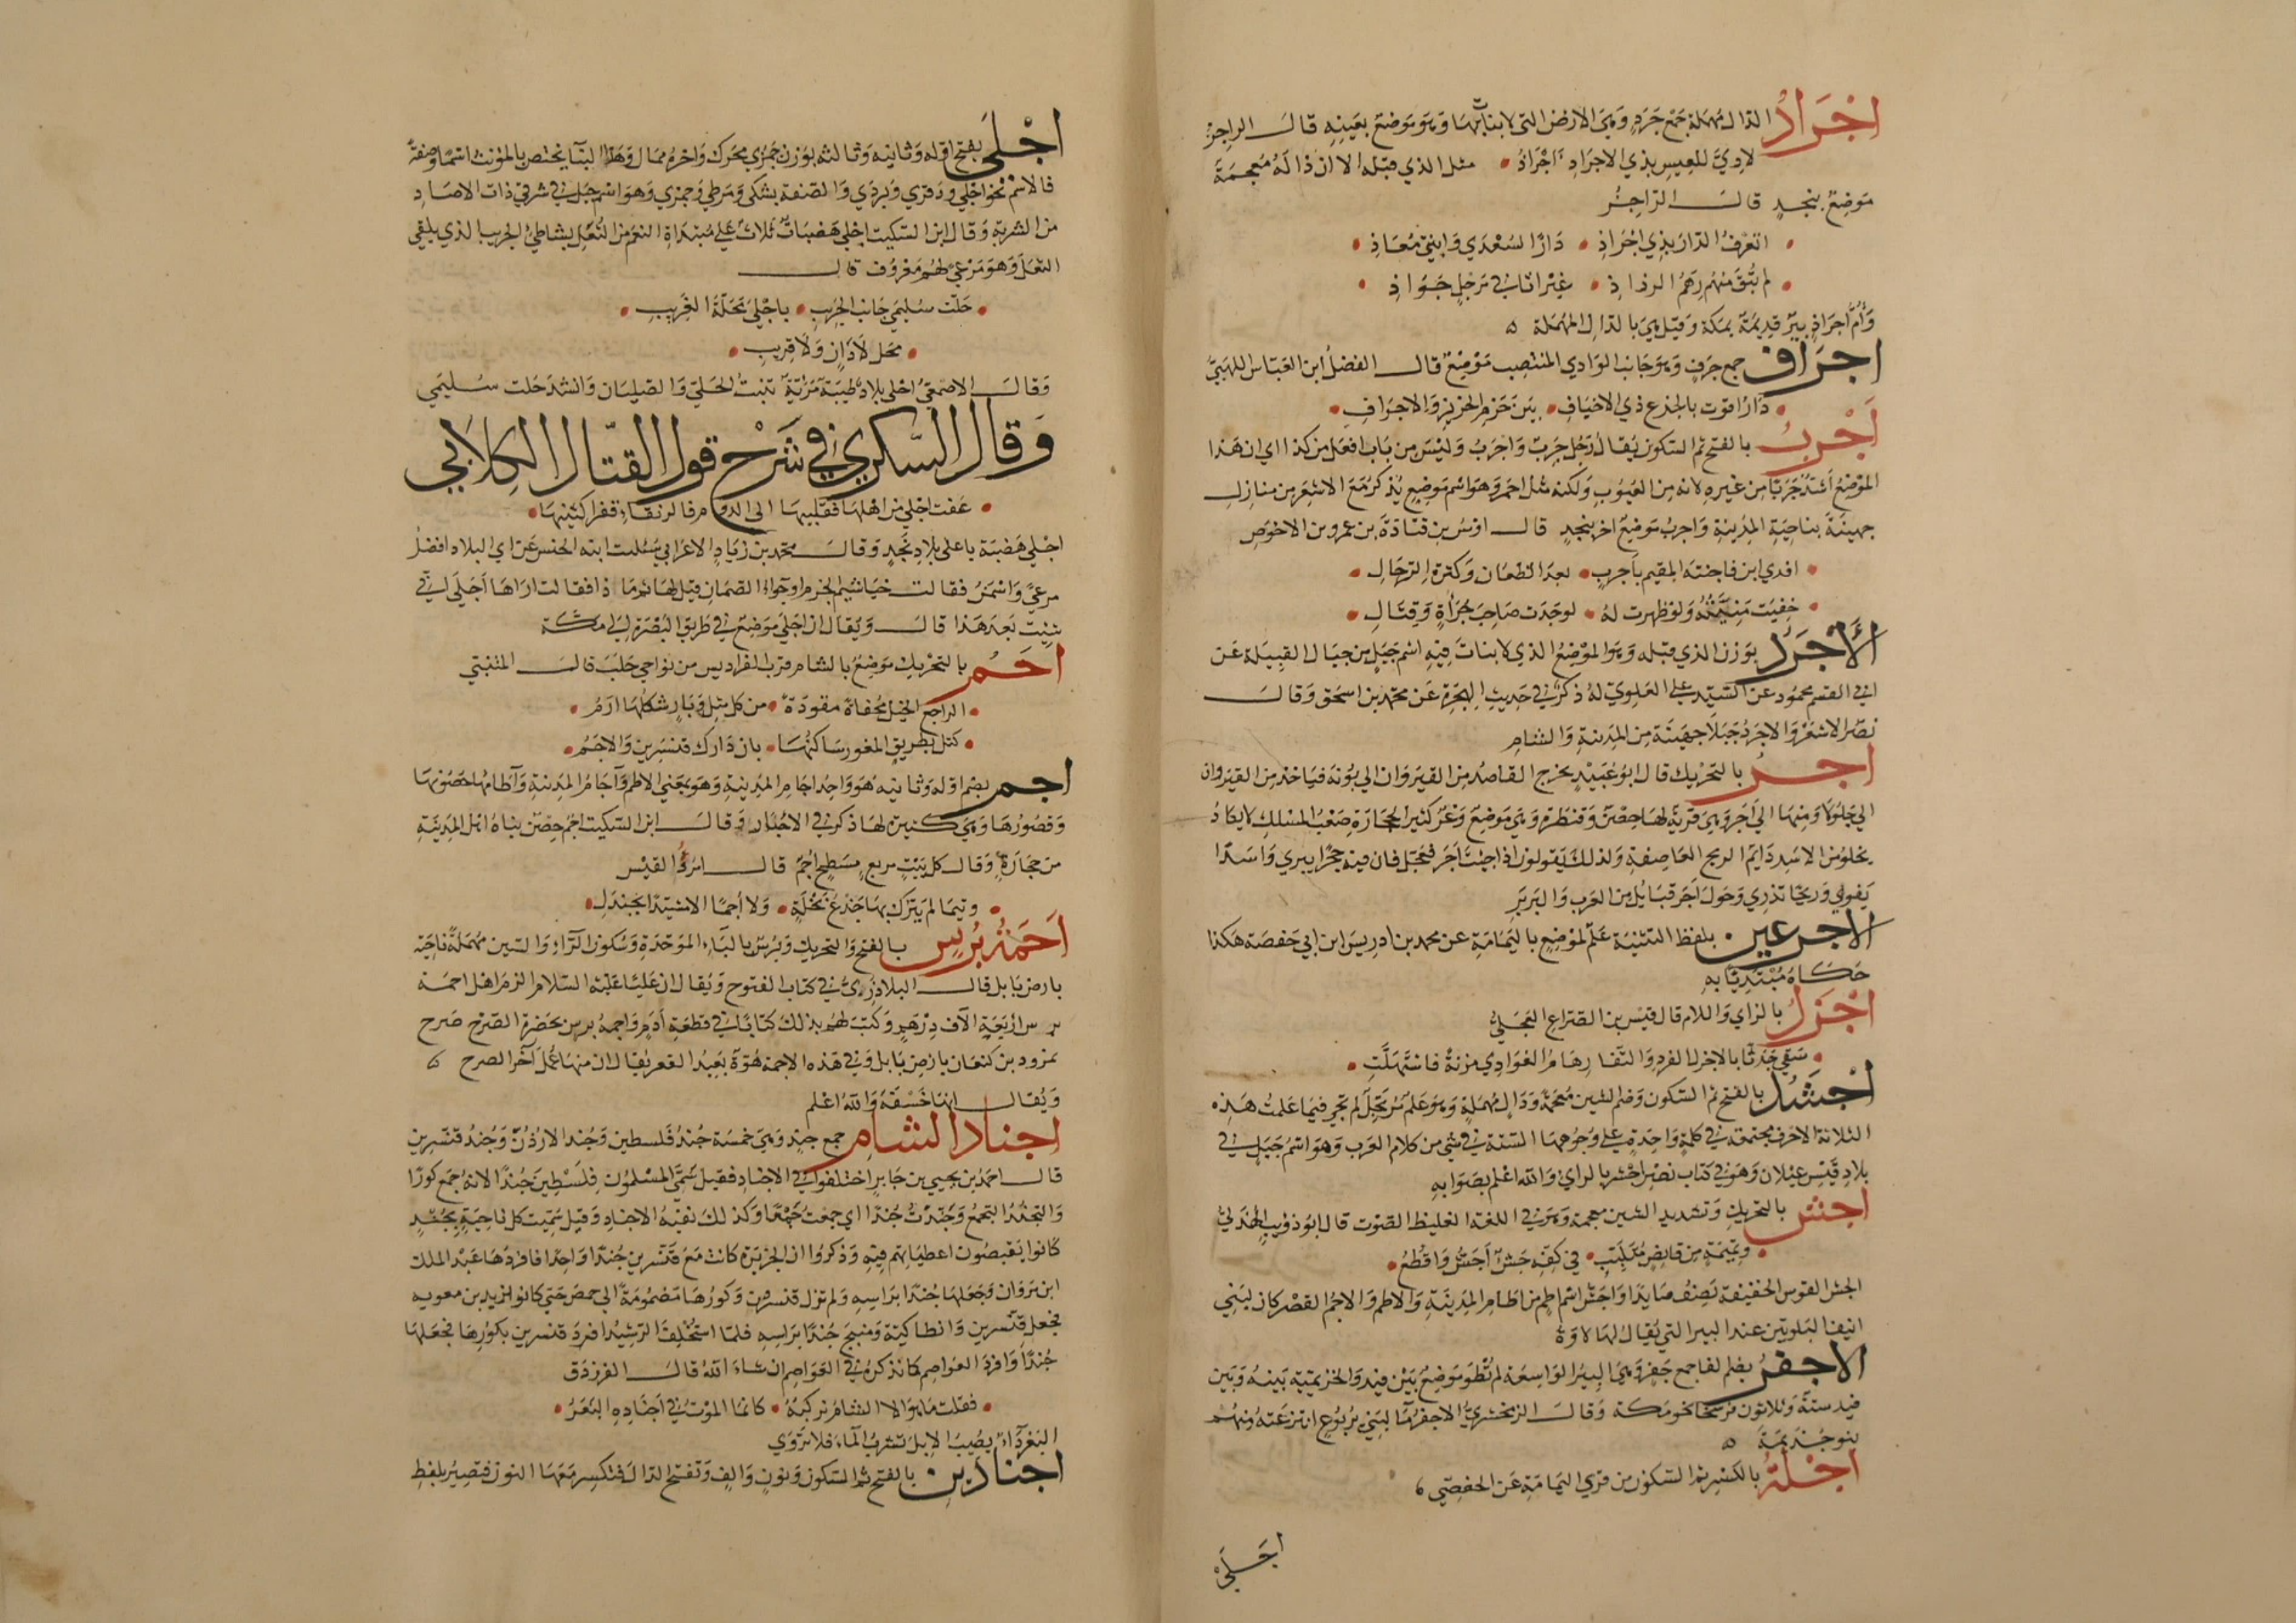 اجراد الدال مهملة جمع جرد وهي الارض التي لا نبات بها وهو موضع بعينه قال الراجز
لا ريّ للعيس بذي الاجراد اجراذ مثل الذي قبله الا ان ذاله معجمة
موضع بنجد قال الراجز
اتعرف الدار بذي اجراذ دارا لسعدي وابني معاذ
لم تبق منهم رهم الرذاذ غير اثافي مرجل جواذ
وأم أجراذ بير قديمة بمكة وقيل هي بالدال المهملة
اجراف جمع جرف وهو جانب الوادي المنتصب موضع قال الفضل ابن العباس اللهبي
دار اقوت بالجزع ذي الاخياف بين حزم الجزيز والاجراف
اجرب بالفتح ثم السكون يقال رجل جرب واجرب وليس من باب افعل من كذا اي ان هذا
الموضع أشد جربا من غيره لانه من العيوب ولكنه مثل احمر وهو اسم موضع يذكر مع الاشعر من منازل
جهينة بناحية المدينة واجرب موضع اخر بنجد قال اوس بن قتادة بن عمرو بن الاخوص
افدي ابن فاختة المقيم باجرب بعد الظعان وكثرة الترحال
خفيت منيته ولو ظهرت له لوجدت صاحب جرأة وقتال
الأجرد بوزن الذي قبله وهو الموضع الذي لا نبات فيه اسم جبل من جبال القبيلة عن
ابي القسم محمود عن السيد علي العلوي له ذكر في حديث الهجرة عن محمد بن اسحق وقال
نصر الاشعر والاجرد جبلا جهينة من المدينة والشام
اجر بالتحريك قال ابو عبيد يخرج القاصد من القيروان الي بونة فياخذ من القيروان
الي جلولا ومنها الي اجر وهي قرية لها حصن وقنطرة وهي موضع وعر كثير الحجارة صعب المسلك لا يكاد
يخلو من الاسد دايم الريح العاصفة ولذلك يقولون اذا جيت اجر فعجل فان فيه حجرا يبري واسدا
يفري وريحا تذري وحول اجر قبايل من العرب والبربر
الاجرعين بلفظ التثنية علم لموضع باليمامة عن محمد بن ادريس ابن ابي حفصة هكذا
حكاه مبتديا به
اجزل بالزاي واللام قال قيس بن الصراع العجلي
سقي جدثا بالاجزل الفرد والنقا رهام الغوادي مزنة فاستهلت
اجشد بالفتح ثم السكون وضم الشين معجمة ودال مهملة وهو علم مرتجل لم تجي فيما علمت هذه
الثلاثة الاحرف مجتمعة في كلمة واحدة علي وجوهها الستة في شي من كلام العرب وهو اسم جبل في
بلاد قيس عيلان وهو في كتاب نصر اجشر بالراي والله اعلم بصوابه
اجش بالتحريك وتشديد الشين معجمة وهو في اللغة الغليظ الصوت قال ابو ذؤيب الهذلي
ونميمة من قانص متلبب في كفه جشء أجش واقطع
الجش القوس الخفيفة تصنف صايدا واجش اسم اطم من اطام المدينة والاطم والاجم القصر كان لبني
انيف البلويين عند البير التي يقال لها لاوة
الاجفر بضم الفا جمع جفر وهي البير الواسعة لم تطو موضع بين فيد والخزيمية بينه وبين
فيد ستة وثلاثون فرسخا نحو مكة وقال الزمخشري الاجفر ما لبني يربوع انتزعته منهم
بنو جذيمة
اجلة بالكسر ثم السكون من قري اليمامة عن الحفصي
اجلي
اجلى بفتح اوله وثانيه وثالثه بوزن جمزي محرك واخره ممال وهذا البنا يختص بالمؤنث اسما وصفة
فالاسم نحو اجلي ودقري وبردي والصفة بشكى ومرطي وجمزي وهو اسم جبل في شرقي ذات الاصاد
من الشربة وقال ابن السكيت اجلي هضبات ثلاث علي مبتداة النعم من الثعل بشاطي الجريب الذي يلقي
الثعل وهو مرعي لهم معروف قال
حلت سليمي جانب الجريب باجلي محلة الغريب
محل لا دان ولا قريب
وقال الاصمعي اجلي بلاد طيبة مرية تنبت الحلي والصليان وانشد حلت سليمي
وقال السكري في شرح قول القتال الكلابي
عفت اجلي من اهلها فقليبها الى الدوم فالرنقاء قفرا كثيبها
اجلي هضبة باعلى بلاد نجد وقال محمد بن زياد الاعرابي سئلت ابنة الخس عن اي البلاد افضل
مرعي واسمن فقالت خياشيم الحزم او جواء الصمان قيل لها ثم ما ذا فقالت اراها اجلي اني
شيت بعد هذا قال ويقال ان اجلي موضع في طريق البصرة الي مكة
اجم بالتحريك موضع بالشام قرب الفراديس من نواحي حلب قال المتنبي
الراجع الخيل محفاة مقودة من كل مثل وبار شكلها ارم
كتل بطريق المغرور ساكنها بان دارك قنسرين والاجم
اجم بضم اوله وثانيه هو واحد اجام المدينة وهو بمعني الاطم وآجام المدينة وآطامها حصونها
وقصورها وهي كثيرة لها ذكر في الاخبار وقال ابن السكيت اجم حصن بناه اهل المدينة
من حجارة وقال كل بيت مربع مسطح اجم قال امرؤ القيس
وتيما لم يترك بها جذع نخلة ولا أجما الا مشيدا بجندل
اجمة برس بالفتح والتحريك وبرس بالباء الموحدة وسكون الراء والسين مهملة ناحية
بارض بابل قال البلاذري في كتاب الفتوح ويقال ان عليا عليه السلام الزم اهل اجمة
برس اربعة الاف درهم وكتب لهم بذلك كتابا في قطعة أدم واجمة برس بحضرة الصرح صرح
نمرود بن كنعان بارض بابل وفي هذه الاجمة هوة بعيد القعر يقال ان منها عمل آجر الصرح
ويقال انها خسفة والله اعلم
اجناد الشام جمع جند وهي خمسة جند فلسطين وجند الاردن وجند قنسرين
قال احمد بن يحيي بن جابر اختلفوا في الاجناد فقيل سمي المسلمون فلسطين جندا لانه جمع كورا
والتجند التجمع وجندت جندا اي جمعت جمعا وكذلك بقية الاجناد وقيل سميت كل ناحية بجند
كانوا يقبضون اعطياتهم فيه وذكروا ان الجزيرة كانت مع قنسرين جندا واحدا فافردها عبد الملك
ابن مروان وجعلها جندا براسه ولم تزل قنسرين وكورها مضمومة الي حمص حتي كان يزيد بن معويه
فجعل قنسرين وانطاكية ومنبج جندا براسه فلما استخلف الرشيد افرد قنسرين بكورها فجعلها
جندا وافرد العواصم كما نذكره في العواصم ان شاء الله قال الفرزدق
فقلت ما هو الا الشام نركبه كانما الموت في اجناده البغر
البغر داء يصيب الابل تشرب الماء فلا تروي
اجنادين بالفتح ثم السكون ونون والف وتفتح الدال فتكسر معها النون فيصير بلفظ